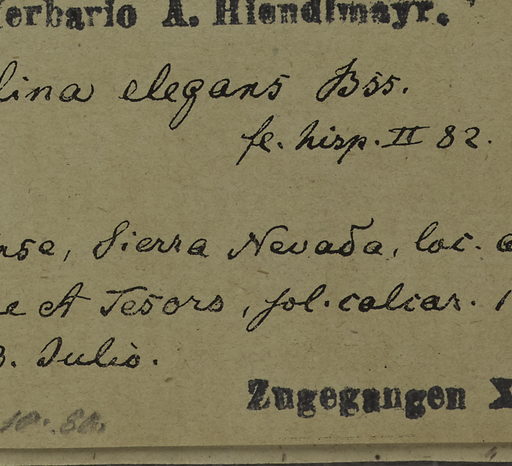 erbario A. Hiendlmayr.
lina elegans Bss.
fl. hisp. II 82.
nse, Sierra Nevada, loc.
e A Tesoro, sol. calcar. 1
3. Julio.
Zugegangen X
10. 80.